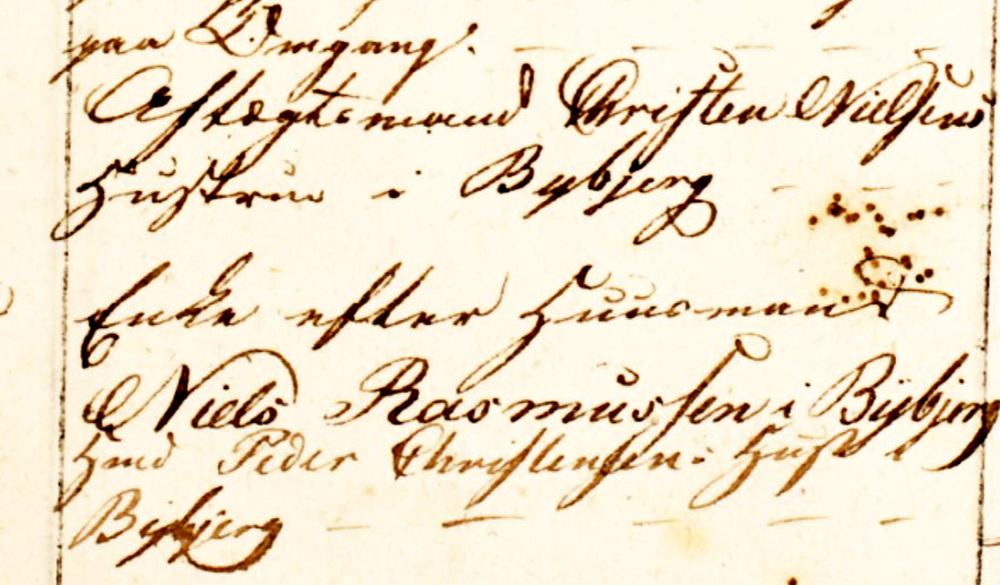 paa Omgang.
Aftægtsmand Christen Nielsens
Hustrue i Bybjerg
Enke efter Huusmand
Niels Rasmussen i Bybjerg
Hmd Peder Christensens Huus i
Bybjerg